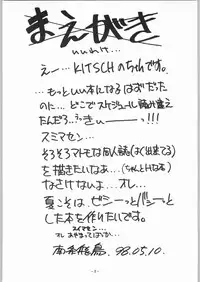 まえがき
いいわけ…
えー…KITSCHのちゃんです。
…もっといい本になるはずだった
のに…どこでスケジュール読み違え
たんだろ…きぃーーっ!!!
スミマセン…
そろそろマトモな同人誌(ばく出来てる)
を描きたいなぁ…(ちゃんとHなる)
なさけないよ…オレ…
夏こそは、ビシーッとバシーッと
した本を作りたいです。
スイマセン…
オレ あやまってばっか…
98.05.10.
-3-